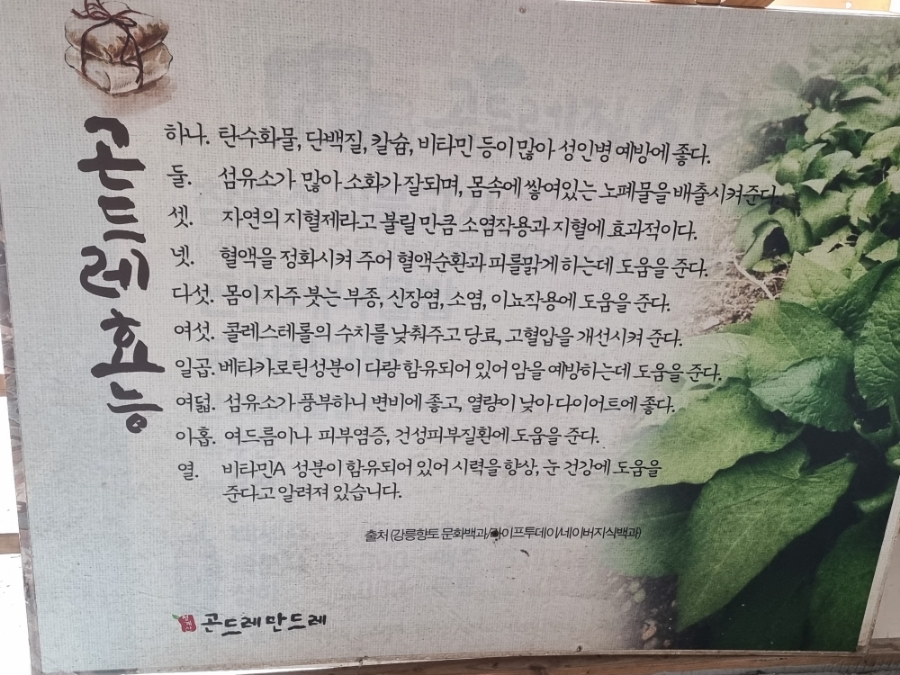 곤드레 효능
하나. 탄수화물, 단백질, 칼슘, 비타민 등이 많아 성인병 예방에 좋다.
둘. 섬유소가 많아 소화가 잘되며, 몸속에 쌓여있는 노폐물을 배출시켜준다.
셋. 자연의 지혈제라고 불릴 만큼 소염작용과 지혈에 효과적이다.
넷. 혈액을 정화시켜 주어 혈액순환과 피를맑게 하는데 도움을 준다.
다섯. 몸이 자주 붓는 부종, 신장염, 소염, 이뇨작용에 도움을 준다.
여섯. 콜레스테롤의 수치를 낮춰주고 당료, 고혈압을 개선시켜 준다.
일곱. 베타카로틴성분이 다량 함유되어 있어 암을 예방하는데 도움을 준다.
여덟. 섬유소가 풍부하니 변비에 좋고, 열량이 낮아 다이어트에 좋다.
아홉. 여드름이나 피부염증, 건성피부질환에 도움을 준다.
열. 비타민A 성분이 함유되어 있어 시력을 향상, 눈 건강에 도움을
준다고 알려져 있습니다.
출처 (강릉향토 문화백과/라이프투데이/네이버지식백과)
곤드레만드레